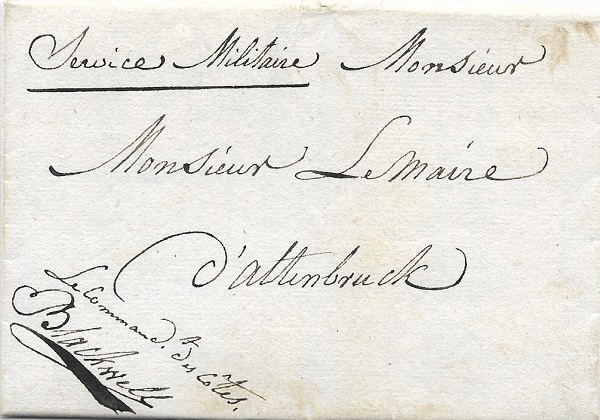 Service Militaire Monsieur
Monsieur Le Maire
d'altenbruck
Le Command.t des Côtes.
Blackwell